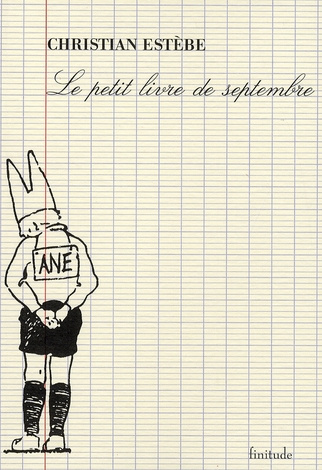 CHRISTIAN ESTÈBE
Le petit livre de septembre
ANE
finitude